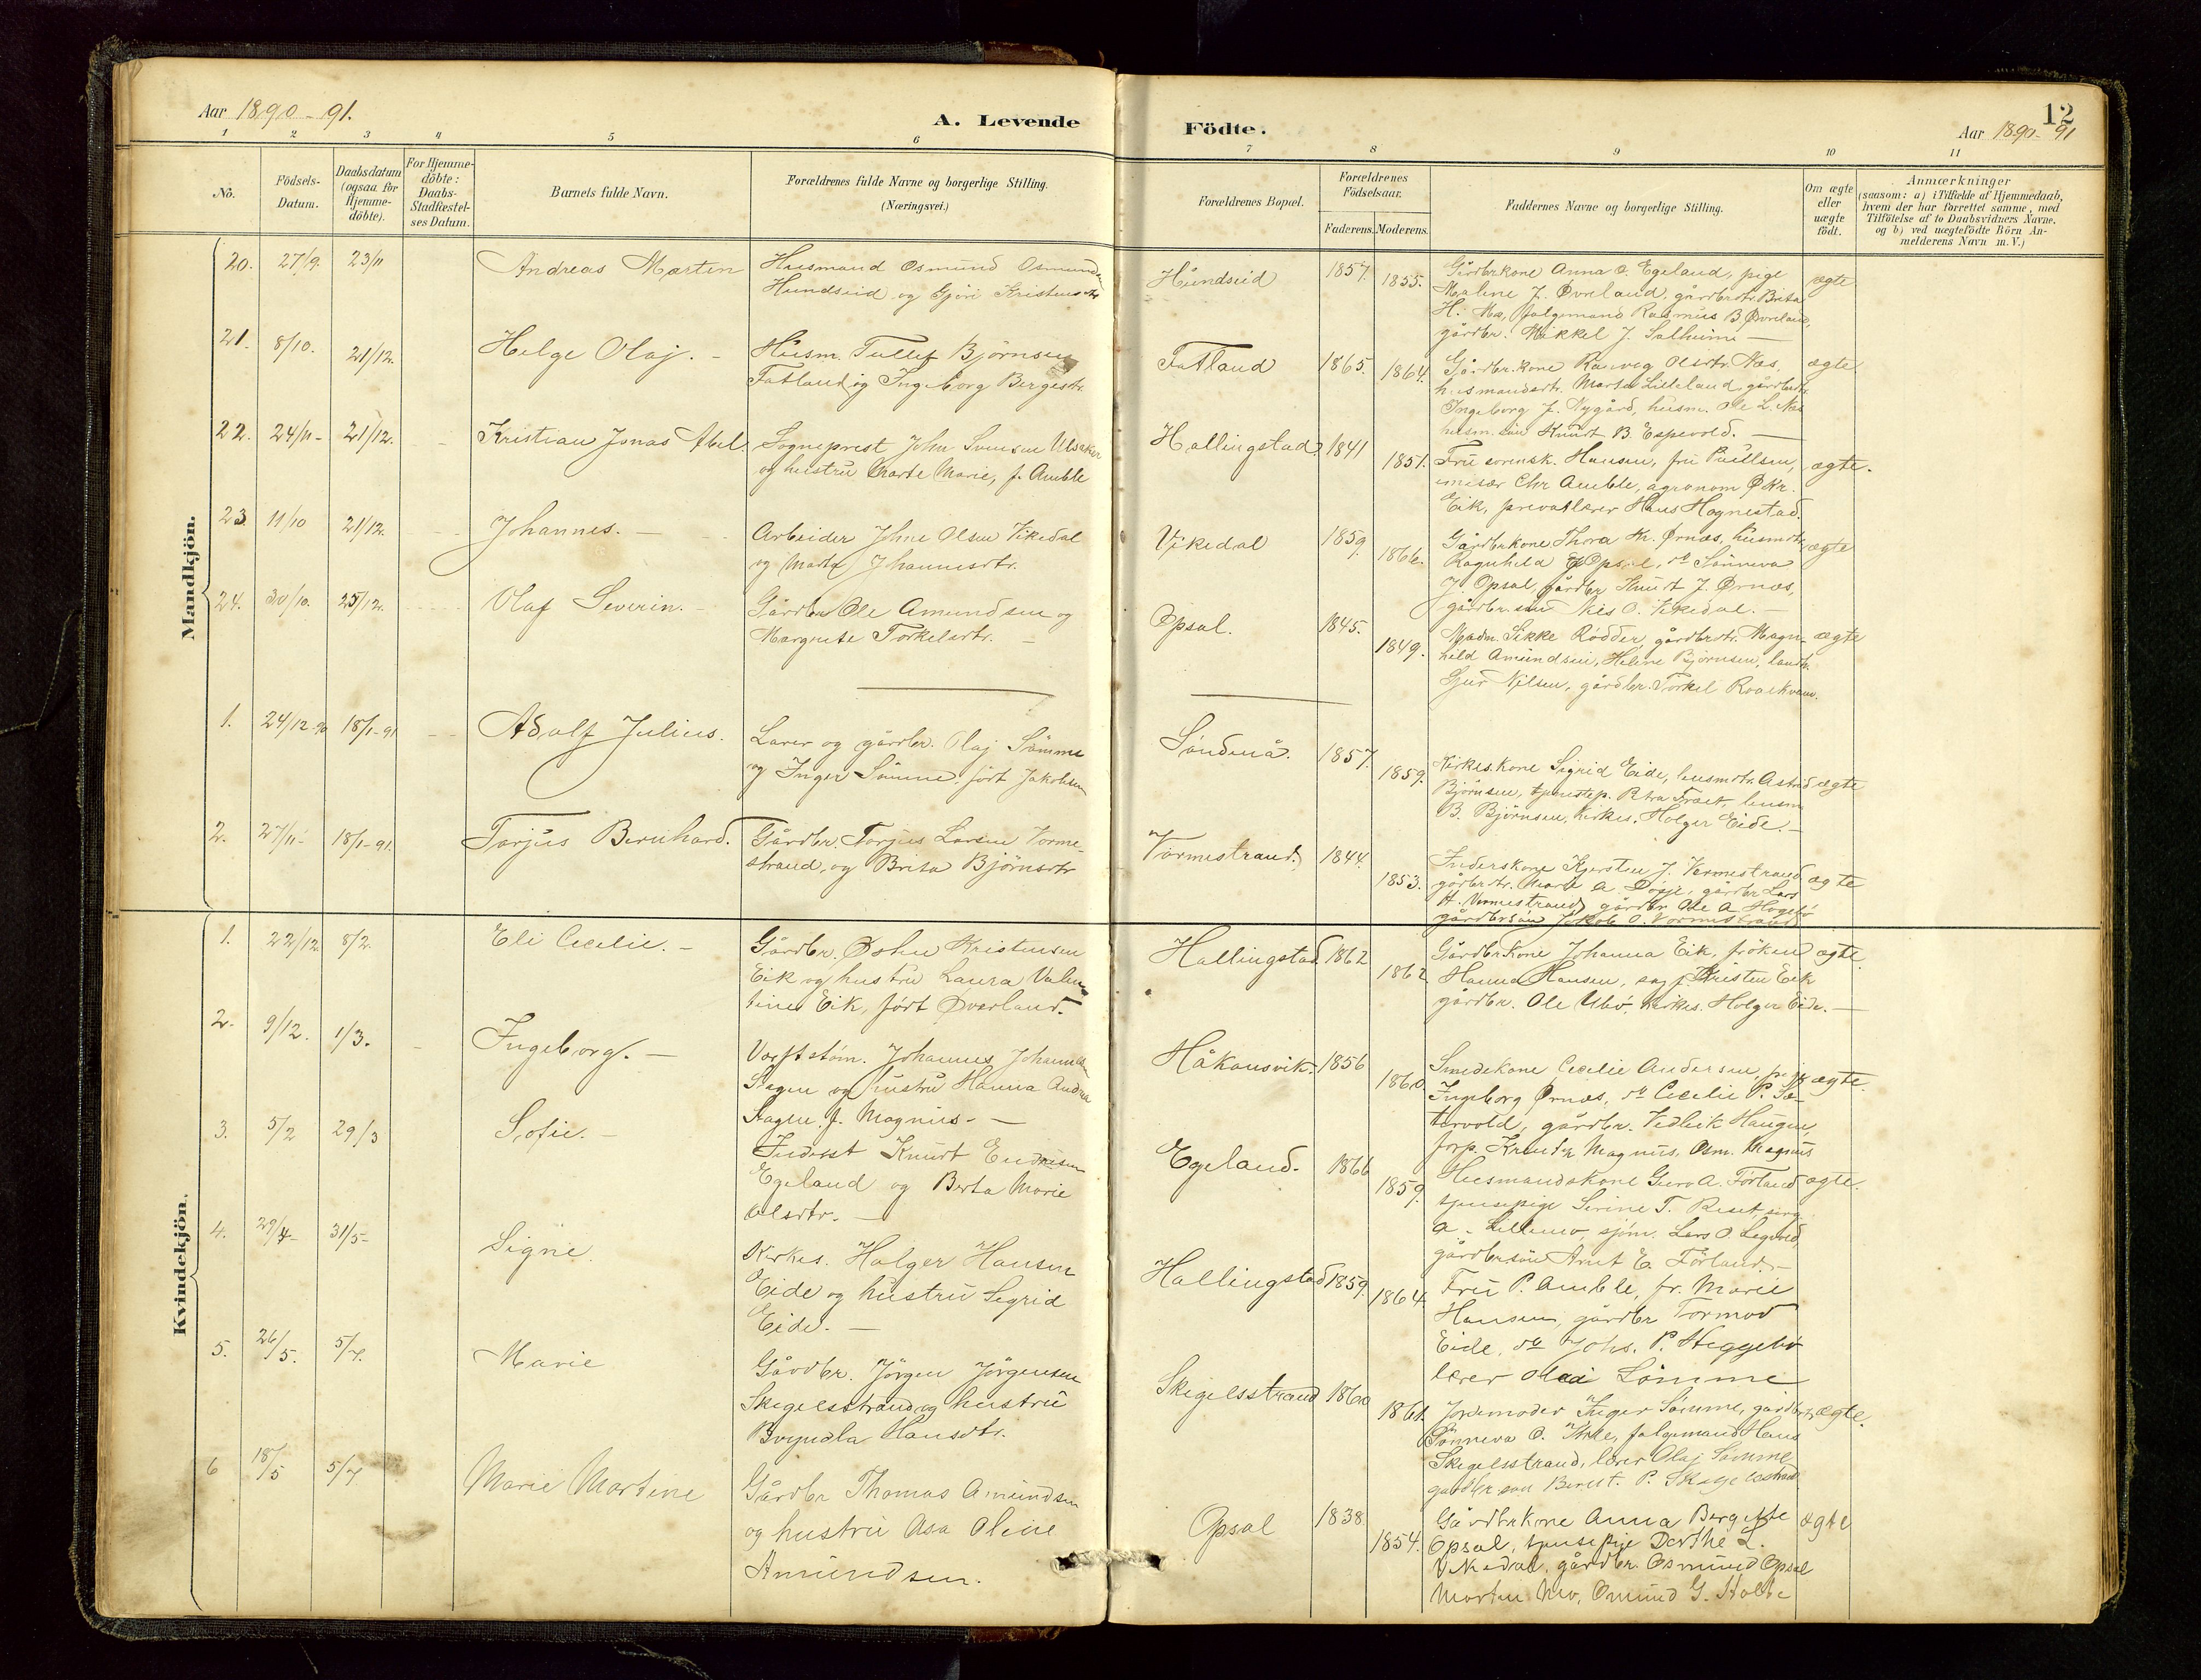 Aar 1890-91.
A. Levende
Födte.
12
Aar 1890-91
1 2 3 4 5 6 7 8 9 10 11
No.
Födsels-
Datum.
Daabsdatum
(ogsaa for
Hjemme-
döbte).
For Hjemme-
döbte:
Daabs-
Stadfæstel-
ses Datum.
Barnets fulde Navn.
Forældrenes fulde Navne og borgerlige Stilling.
(Næringsvei.)
Forældrenes Bopæl.
Forældrenes
Födselsaar.
Faderens. Moderens.
Faddernes Navne og borgerlige Stilling.
Om ægte
eller
uægte
födt.
Anmærkninger
(saasom: a) i Tilfælde af Hjemmedaab,
hvem der har forrettet samme, med
Tilföielse af to Daabsvidners Navne.
og b) ved uægtefödte Börn An-
melderens Navn m. V.)
Mandkjön.
20. 27/9. 23/11 Andreas Martin
Husmand Osmund Osmundsen
Hundseid og Gjöri Kristensdtr
Hundseid 1857. 1855.
Gårdbrkone Anna O. Egeland, pige
Maline J. Øvreland, gårdbrdtr. Brita
H. Mæ, følgemand Rasmus B Øvreland,
gårdbr. Mikkel J. Salheime —
ægte
21. 8/10. 21/12. Helge Olaj. -
Husm. Tullef Björnsen
Fatland og Ingeborg Bergesdtr.
Fatland 1865. 1864.
Gårdbr.kone Ranveg Olsdtr. Næs,
husmandsdtr. Marta Lilleland, gårdbrdtr
Ingeborg J. Nygård, husm. Ole L. Næs
husm.sön Knudt B. Espevold. —
ægte.
22. 24/11- 21/12. Kristian Jonas Abel.
Sogneprest John Svensen Ulsaker
og hustru Marte Marie, f. Amble
Hallingstad 1841 1851.
Fru sorensk. Hansen, fru Paulsen,
Chr Amble, agronom Ø. Kr.
Eik, privatlærer Hans Hognestad.
ægte.
23. 11/10 21/12. Johannes. —
Arbeider Johne Olsen Vikedal
og Marta Johannesdtr.
Vikedal 1859. 1866.
Gårdbrkone Thora Kr. Ørnæs, husmdtr
Ragnhild Opsal, do Sönneva
J. Opsal, gårdbr Knudt J. Ørnæs,
gårdbr.sön Nils O. Vikedal. —
ægte
24. 30/10. 25/12. Olaf Severin. -
Gårdbr Ole Amundsen og
Margrete Torkelsdtr. —
Opsal. 1845. 1849.
Madm. Sikke Rödder, gårdbrdtr. Magn-
hild Amundsen, Heline Björnsen, landh.
Sjur Nilsen, gårdbr. Torkel Roalkvam.
ægte
1. 24/12-90 18/1-91 Adolf Julius.
Lærer og gårdbr. Olaj Sömme
og Inger Sömme, födt Jakobsen
Söndenå. 1857. 1859.
Kirkes.kone Sigrid Eide, husmdtr. Astrid
Björnsen, tjenestep. Petra Træet, husm
B. Björnsen, kirkes. Holger Eide. —
ægte
2. 27/11- 18/1-91. Torjus Bernhard.
Gårdbr. Torjus Larsen Vorme-
strand, og Brita Björnsdtr
Vormestrand. 1844. 1853.
Inderskone Kjersten J. Vormestrand
gårdbrdtr. Marte A. Dörje, gårdbr Lars
H. Vormestrand, gårdbr Ole A.
gårdbrsön Jakob O. Vormestrand
ægte
Kvindekjön.
1. 22/12. 8/2. Eli Cecilie. -
Gårdbr. Østen Kristensen
Eik og hustru Laura Valen-
tine Eik, födt Øverland.
Hallingstad. 1862 1862
Gårdbrkone Johanna Eik, fröken
Hanna Hansen, sagf. Kristen Eik
gårdbr. Ole Ubö, kirkes. Holger Eide. —
ægte.
2. 9/12. 1/3. Ingeborg. —
Værftstöm. Johannes Johannesen
Stagen og hustru Hanna Andrea
Stagen f. Magnus. —
Håkonsvik. 1856 1860.
Smedekone Cecilie Andersen, pige
Ingeborg Ørnæs, do Cecilie P. Sæ-
tervold, gårdbr. Vedleik Haugen,
forp. Knud Magnus, Osm. Magnus
ægte.
3. 5/2 29/3 Sofie. -
Inderst Knudt Endresen
Egeland og Berta Marie
Olsdtr. —
Egeland. 1866 1859.
Husmandskone Guro A. Förland
tjenstpige Serine T. Reset,
A. Lillemo, sjöm. Lars O. Legvold,
gårdbrsön Arnt E. Förland. —
ægte.
4. 29/4- 31/5- Signe.
Kirkes. Holger Hansen
Eide og hustru Sigrid
Eide. —
Hallingstad 1859. 1864.
Fru P. Amble, fr. Marie
Hansen, gårdbr Tormod
Eide, do Johs. P. Heggebö
lærer Olai Sömme
5. 26/5. 5/7. Marie
Gårdbr. Jörgen Jörgensen
Skegelsstrand og hustru
Brynila Hansdtr.
Skegelsstrand 1860 1861.
Jordemoder Inger Sömme, gårdbrdtr
Sönneva O. Kirke, følgemand Hans
Skegelsstrand, lærer Olaj Sömme
gårdbr.sön Berent. P. Skegelsstrand
ægte.
6 18/5 5/7 Marie Martine
Gårdbr Thomas Amundsen
og hustru Asa Oline
Amundsen.
Opsal 1838 1854.
Gårdbrkone Anna Bergitte
Opsal, tjenestpige Dorthe L.
Vikedal, gårdbr. Osmund Opsal
Morten Mo, Omund G. Stölte
ægte